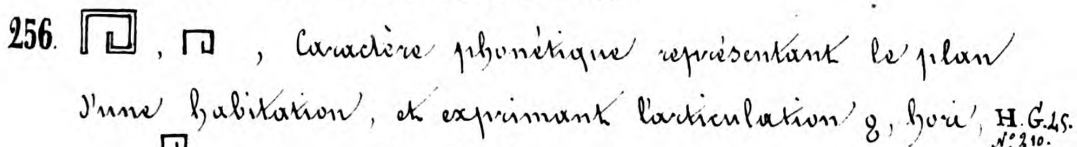 256. 𓉔, 𓉔, Caractère phonétique représentant le plan
d'une habitation, et exprimant l'articulation ϩ, hori, H. G. 45.
N° 210.